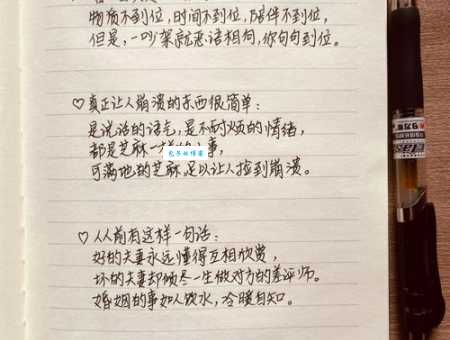 物质不到位,时间不到位,陪伴不到位,
但是,一吵架就恶语相向,你句句到位。
♡真正让人崩溃的东西很简单:
是说话的语气,是不耐烦的情绪,
都是芝麻一样的事,
可满地的芝麻足以让人捡到崩溃。
♡从前有这样一句话:
好的夫妻永远懂得互相欣赏,
坏的夫妻却倾尽一生做对方的差评师。
婚姻的事如人饮水,冷暖自知。